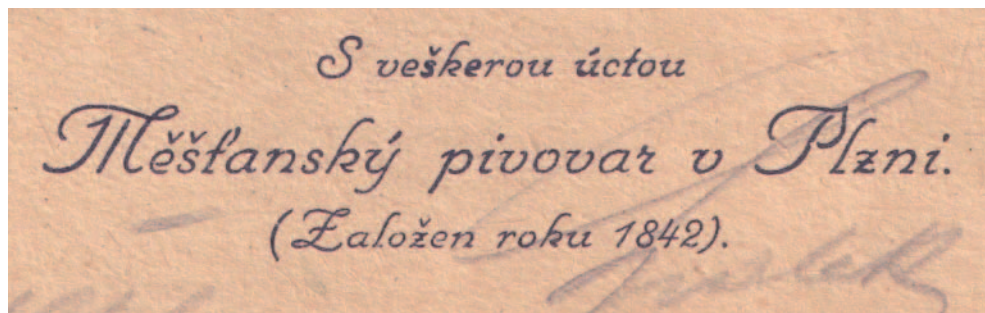 S veškerou úctou
Měšťanský pivovar v Plzni.
(Založen roku 1842).